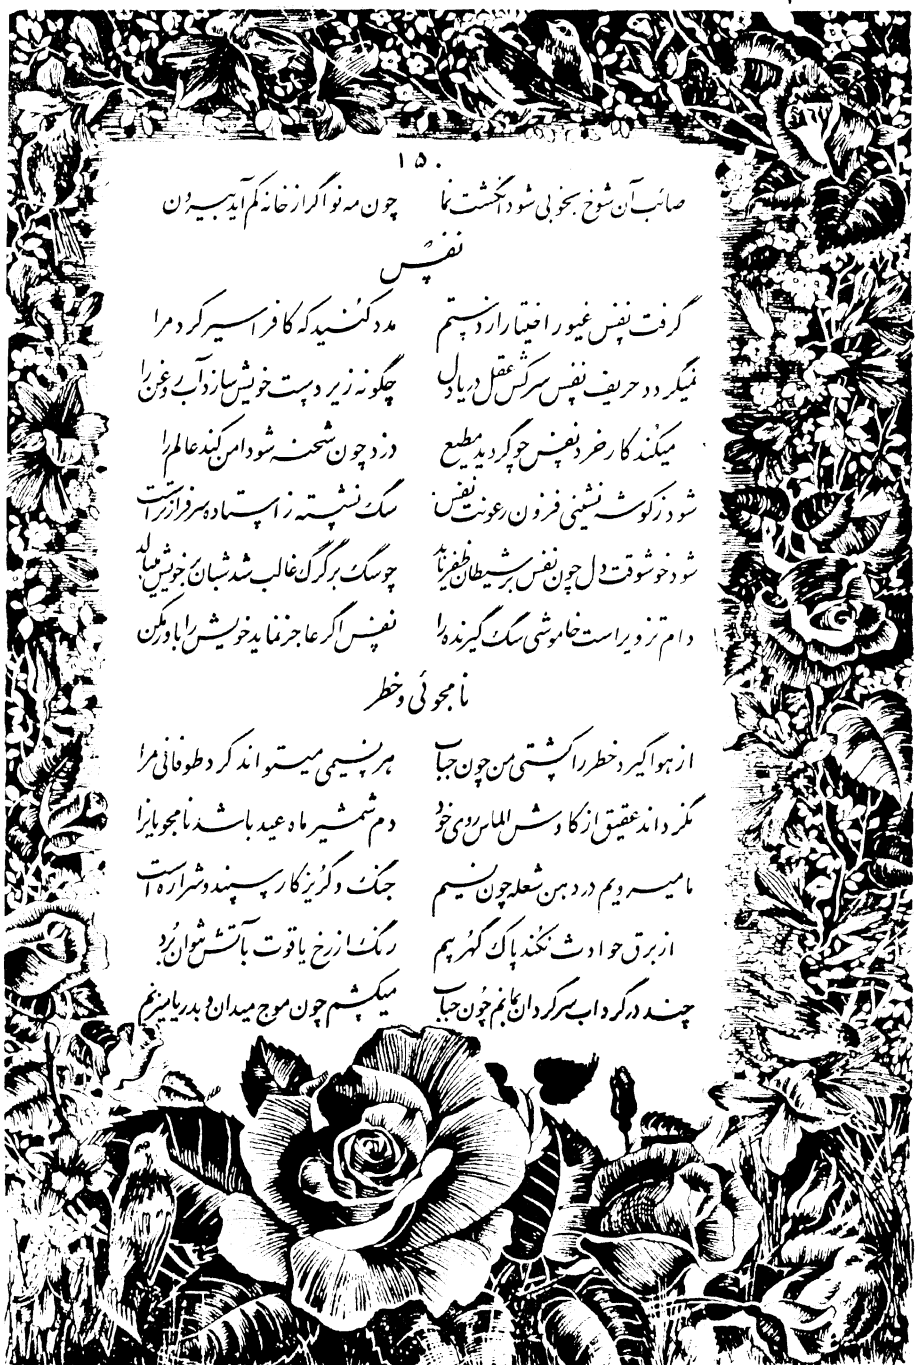 ۱۵۰
صائب آن شوخ بخوبی شود انگشت نما چون مه نو اگر از خانه کم آید بیرون
نفس
گرفت نفس غیور اختیار از دستم مدد کنید که کافر اسیر کرد مرا
نمیگردد حریف نفس سرکش عقل دریادل چگونه زیر دست خویش سازد آب روغن را
میکند کار خرد نفس چو گردید مطیع دزد چون شحنه شود امن کند عالم را
شود ز گوشه نشینی فزون رعونت نفس سگ نشسته ز استاده سرفرازتر است
شود خوشوقت دل چون نفس بر شیطان ظفر یابد چو سگ بر گرگ غالب شد شبان بر خویش میبالد
دام تزویر است خاموشی سگ گیرنده را نفس اگر عاجز نماید خویش را باور مکن
نامجوئی و خطر
از هوا گیرد خطر را کشتی من چون حباب هر نسیمی میتواند کرد طوفانی مرا
نگرداند عقیق از کاوش الماس روی خود دم شمشیر ماه عید باشد نامجویانرا
ما میرویم در دهن شعله چون نسیم جنگ و گریز کار سپند و شراره است
از برق حوادث نکند پاک گهر بیم رنگ از رخ یاقوت بآتش نتوان برد
چند در گرداب سرگردان بمانم چون حباب میکشم چون موج میدان و بدریا میزنم